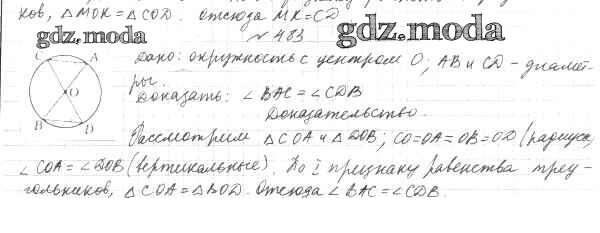 ков, △MOK = △COD. отсюда MK = CD
gdz.moda
№ 483
gdz.moda
C A
O
B D
Дано: окружность с центром O; AB и CD - диамет-
ры.
Доказать: ∠BAC = ∠CDB
Доказательство.
Рассмотрим △COA и △DOB; CO=OA=OB=OD (радиусы,
∠COA = ∠DOB (вертикальные). По I признаку равенства треу-
гольников, △COA = △BOD. Отсюда ∠BAC = ∠CDB.